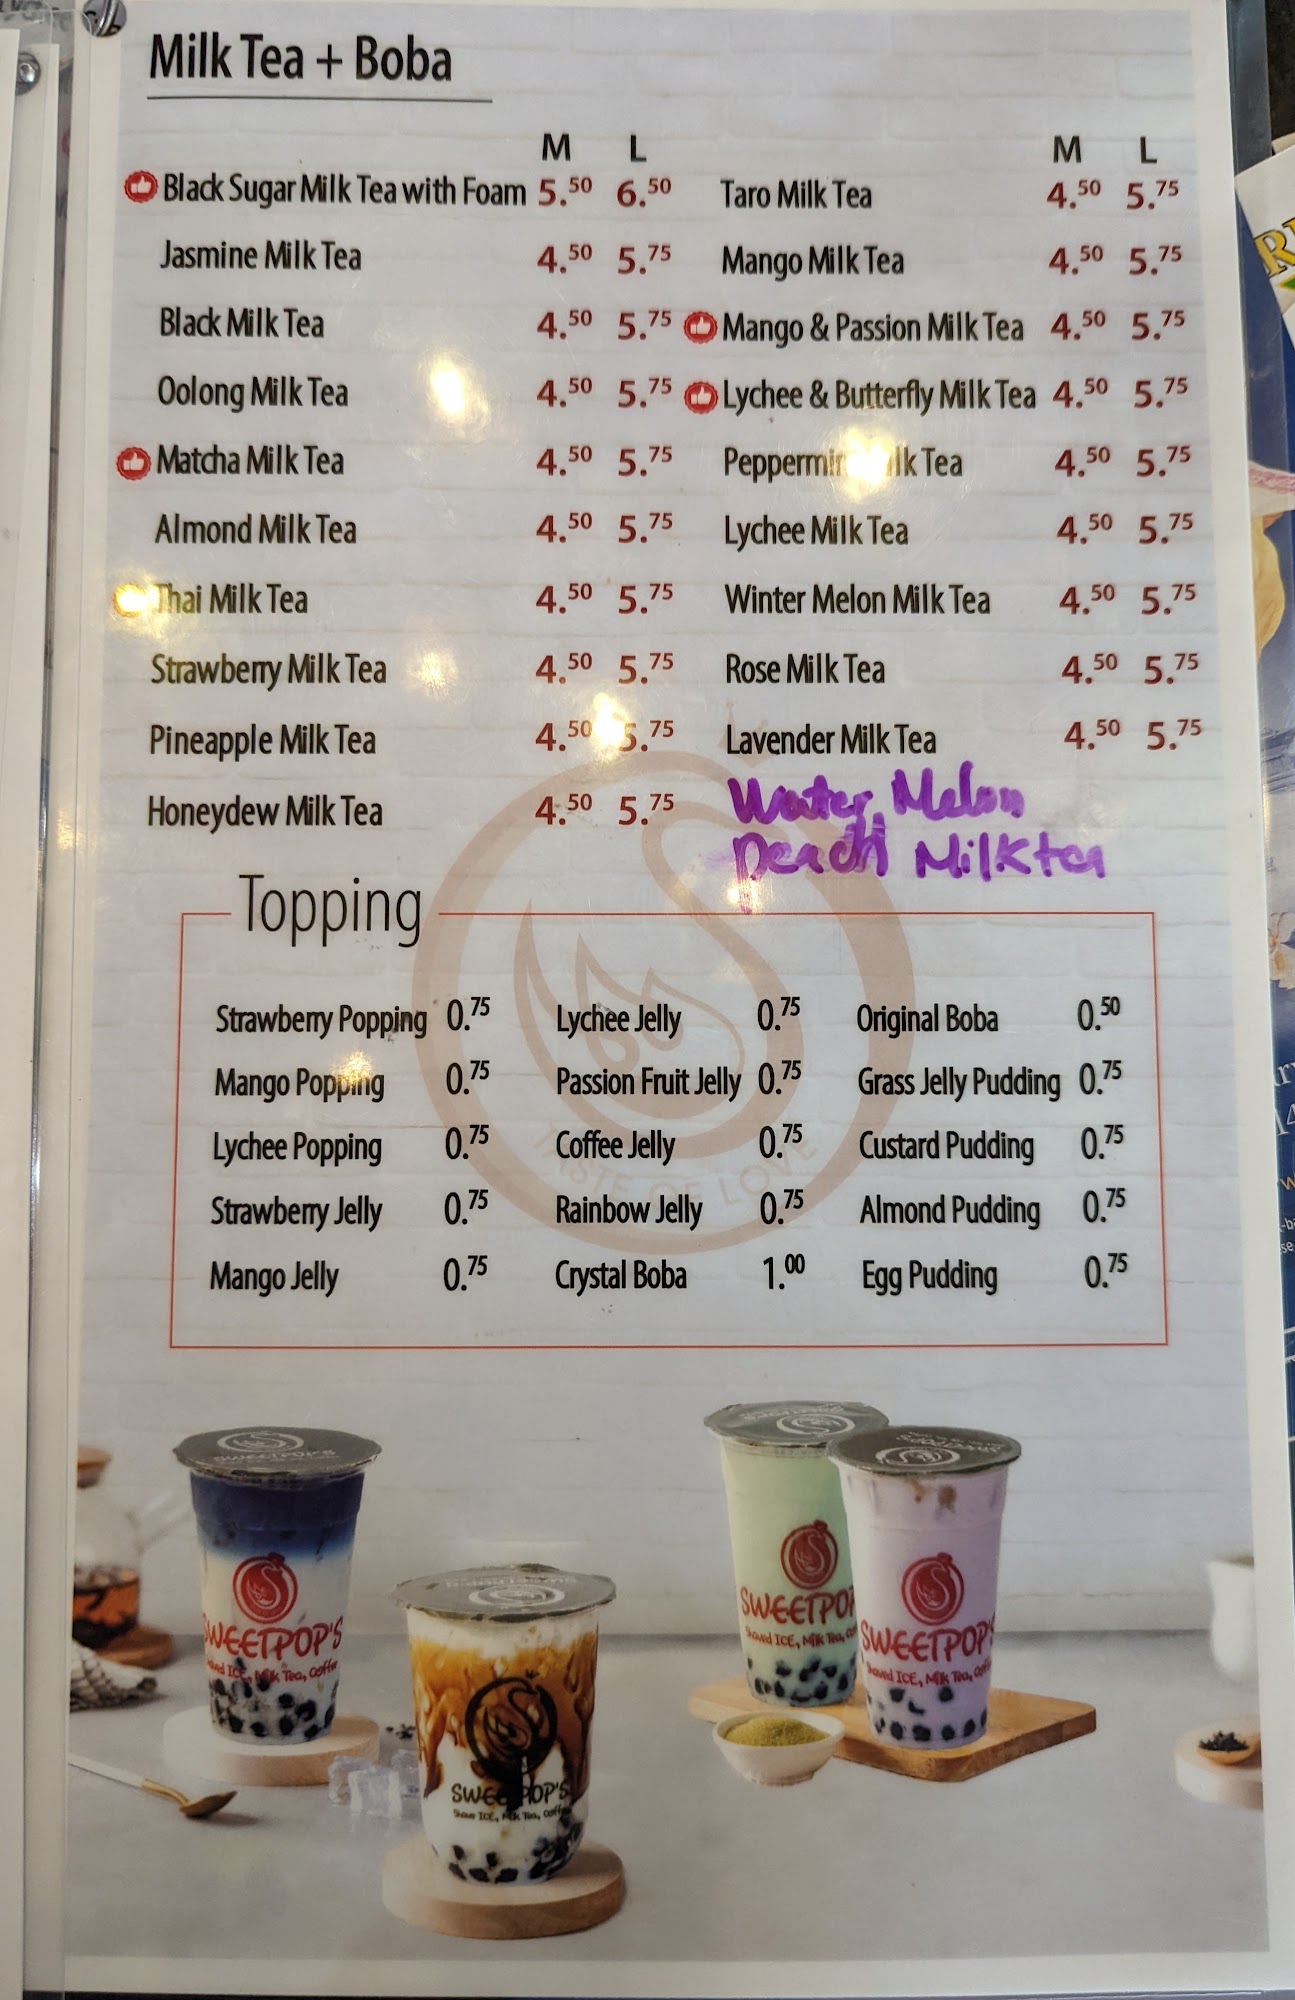 Milk Tea + Boba
M L
Black Sugar Milk Tea with Foam 5.50 6.50
Jasmine Milk Tea 4.50 5.75
Black Milk Tea 4.50 5.75
Oolong Milk Tea 4.50 5.75
Matcha Milk Tea 4.50 5.75
Almond Milk Tea 4.50 5.75
Thai Milk Tea 4.50 5.75
Strawberry Milk Tea 4.50 5.75
Pineapple Milk Tea 4.50 5.75
Honeydew Milk Tea 4.50 5.75
M L
Taro Milk Tea 4.50 5.75
Mango Milk Tea 4.50 5.75
Mango & Passion Milk Tea 4.50 5.75
Lychee & Butterfly Milk Tea 4.50 5.75
Peppermint Milk Tea 4.50 5.75
Lychee Milk Tea 4.50 5.75
Winter Melon Milk Tea 4.50 5.75
Rose Milk Tea 4.50 5.75
Lavender Milk Tea 4.50 5.75
Water Melon
Peach Milktea
Topping
Strawberry Popping 0.75
Mango Popping 0.75
Lychee Popping 0.75
Strawberry Jelly 0.75
Mango Jelly 0.75
Lychee Jelly 0.75
Passion Fruit Jelly 0.75
Coffee Jelly 0.75
Rainbow Jelly 0.75
Crystal Boba 1.00
Original Boba 0.50
Grass Jelly Pudding 0.75
Custard Pudding 0.75
Almond Pudding 0.75
Egg Pudding 0.75
TASTE OF LOVE
SWEETPOP'S
SWEETPOP'S
Shaved ICE, Milk Tea, Coffee
SWEETPOP'S
Shave ICE, Milk Tea, Coffee
SWEETPOP
Shaved ICE, Milk Tea,
SWEETPOP'S
Shaved ICE, Milk Tea,